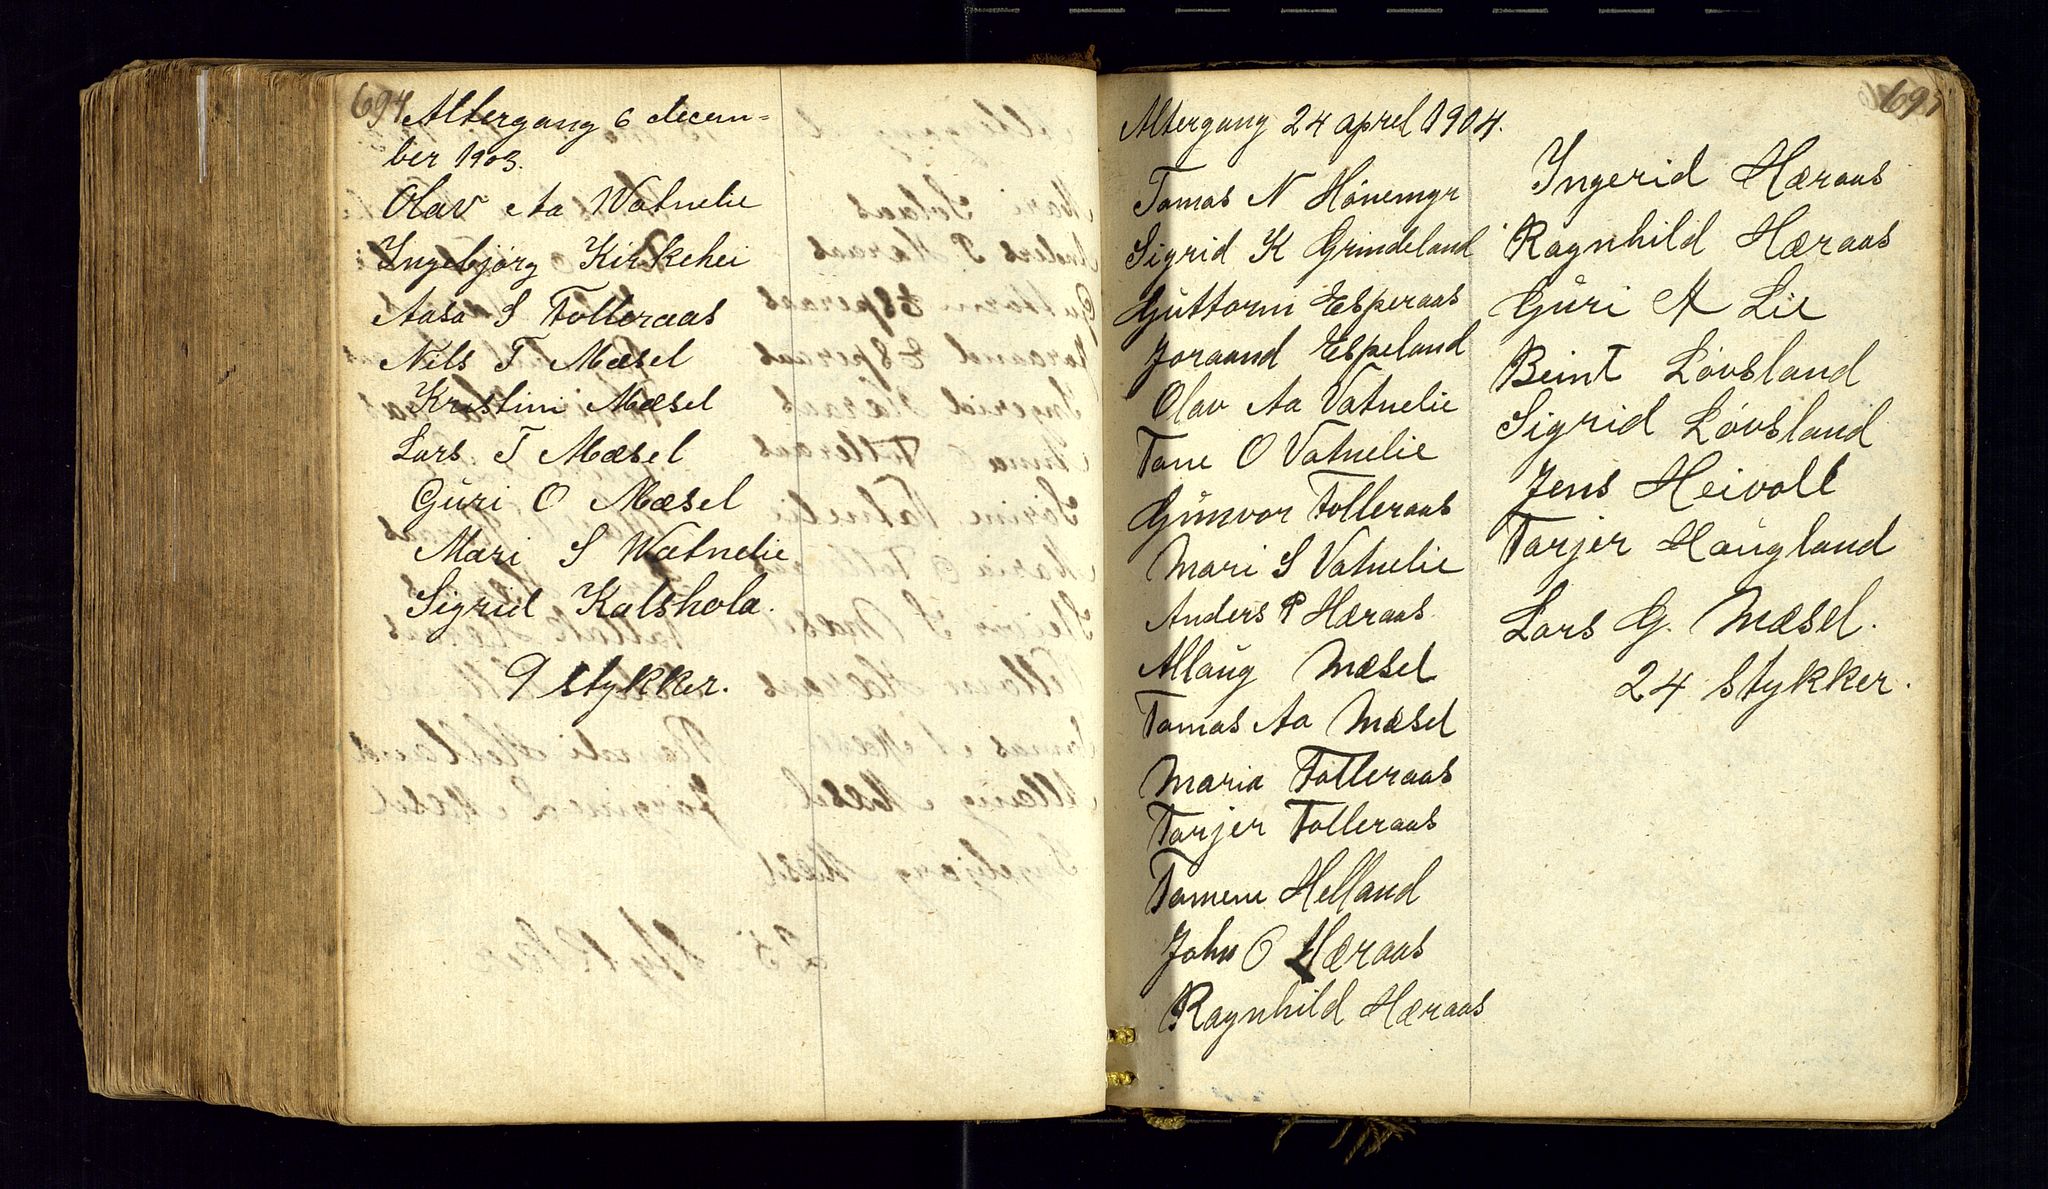 694
Altergang 6 decem=
ber 1903.
Olav Aa Watnelie
Ingebjørg Kirkehei
Aasa S Tolleraas
Nils T Mæsel
Kristini Mæsel
Lars T Mæsel
Gŭri O Mæsel
Mari S Watnelie
Sigrid Kalshola.
9 stykker.
Altergang 24 aprel 1904.
Tomas N Hônemyr
Sigrid K Grindeland
Gŭttorm Esperaas
Joraand Espeland
Olav Aa Vatnelie
Tone O Vatnelie
Gŭnvor Tolleraas
Mari S Vatnelie
Anders P Hæraas
Allaŭg Mæsel
Tomas Aa Mæsel
Maria Tolleraas
Tarjer Tolleraas
Tomene Helland
John O Hæraas
Ragnhild Hæraas
69
Ingerid Hæraas
Ragnhild Hæraas
Gŭri A Lie
Beint Løvsland
Sigrid Løvsland
Jens Heivoll
Tarjer Haŭgland
Lars G. Mæsel.
24 stykker.